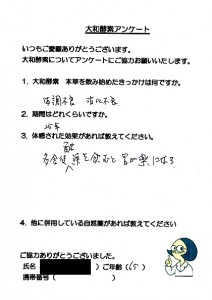 大和酵素アンケート
いつもご愛顧ありがとうございます。
大和酵素についてアンケートにご協力お願いいたします。
1、大和酵素 本草を飲み始めたきっかけは何ですか。
体調不良 消化不良
2、期間はどれくらいですか。
3、体感された効果があれば教えてください
酵
薬を飲むと胃が楽になる
4、他に併用している自然薬があれば教えてください
ご協力ありがとうございました。
氏名 ご年齢(65)
携帯番号( )